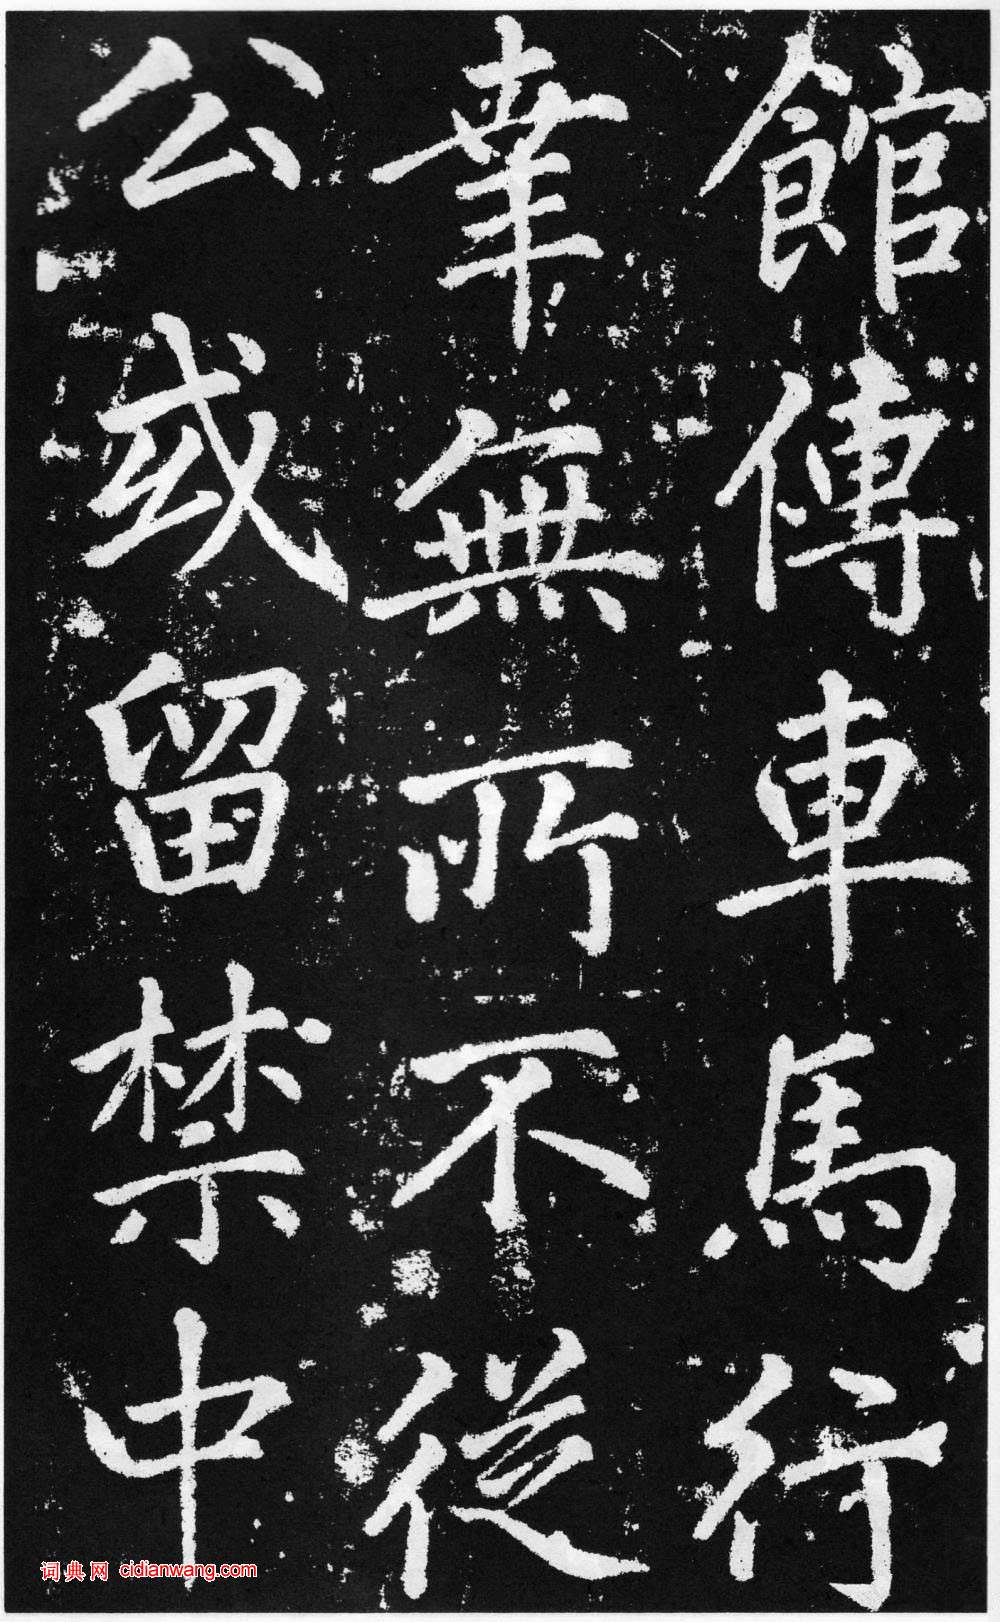 館傳車馬行
幸無所不從
公或留禁中
词典网 cidianwang.com